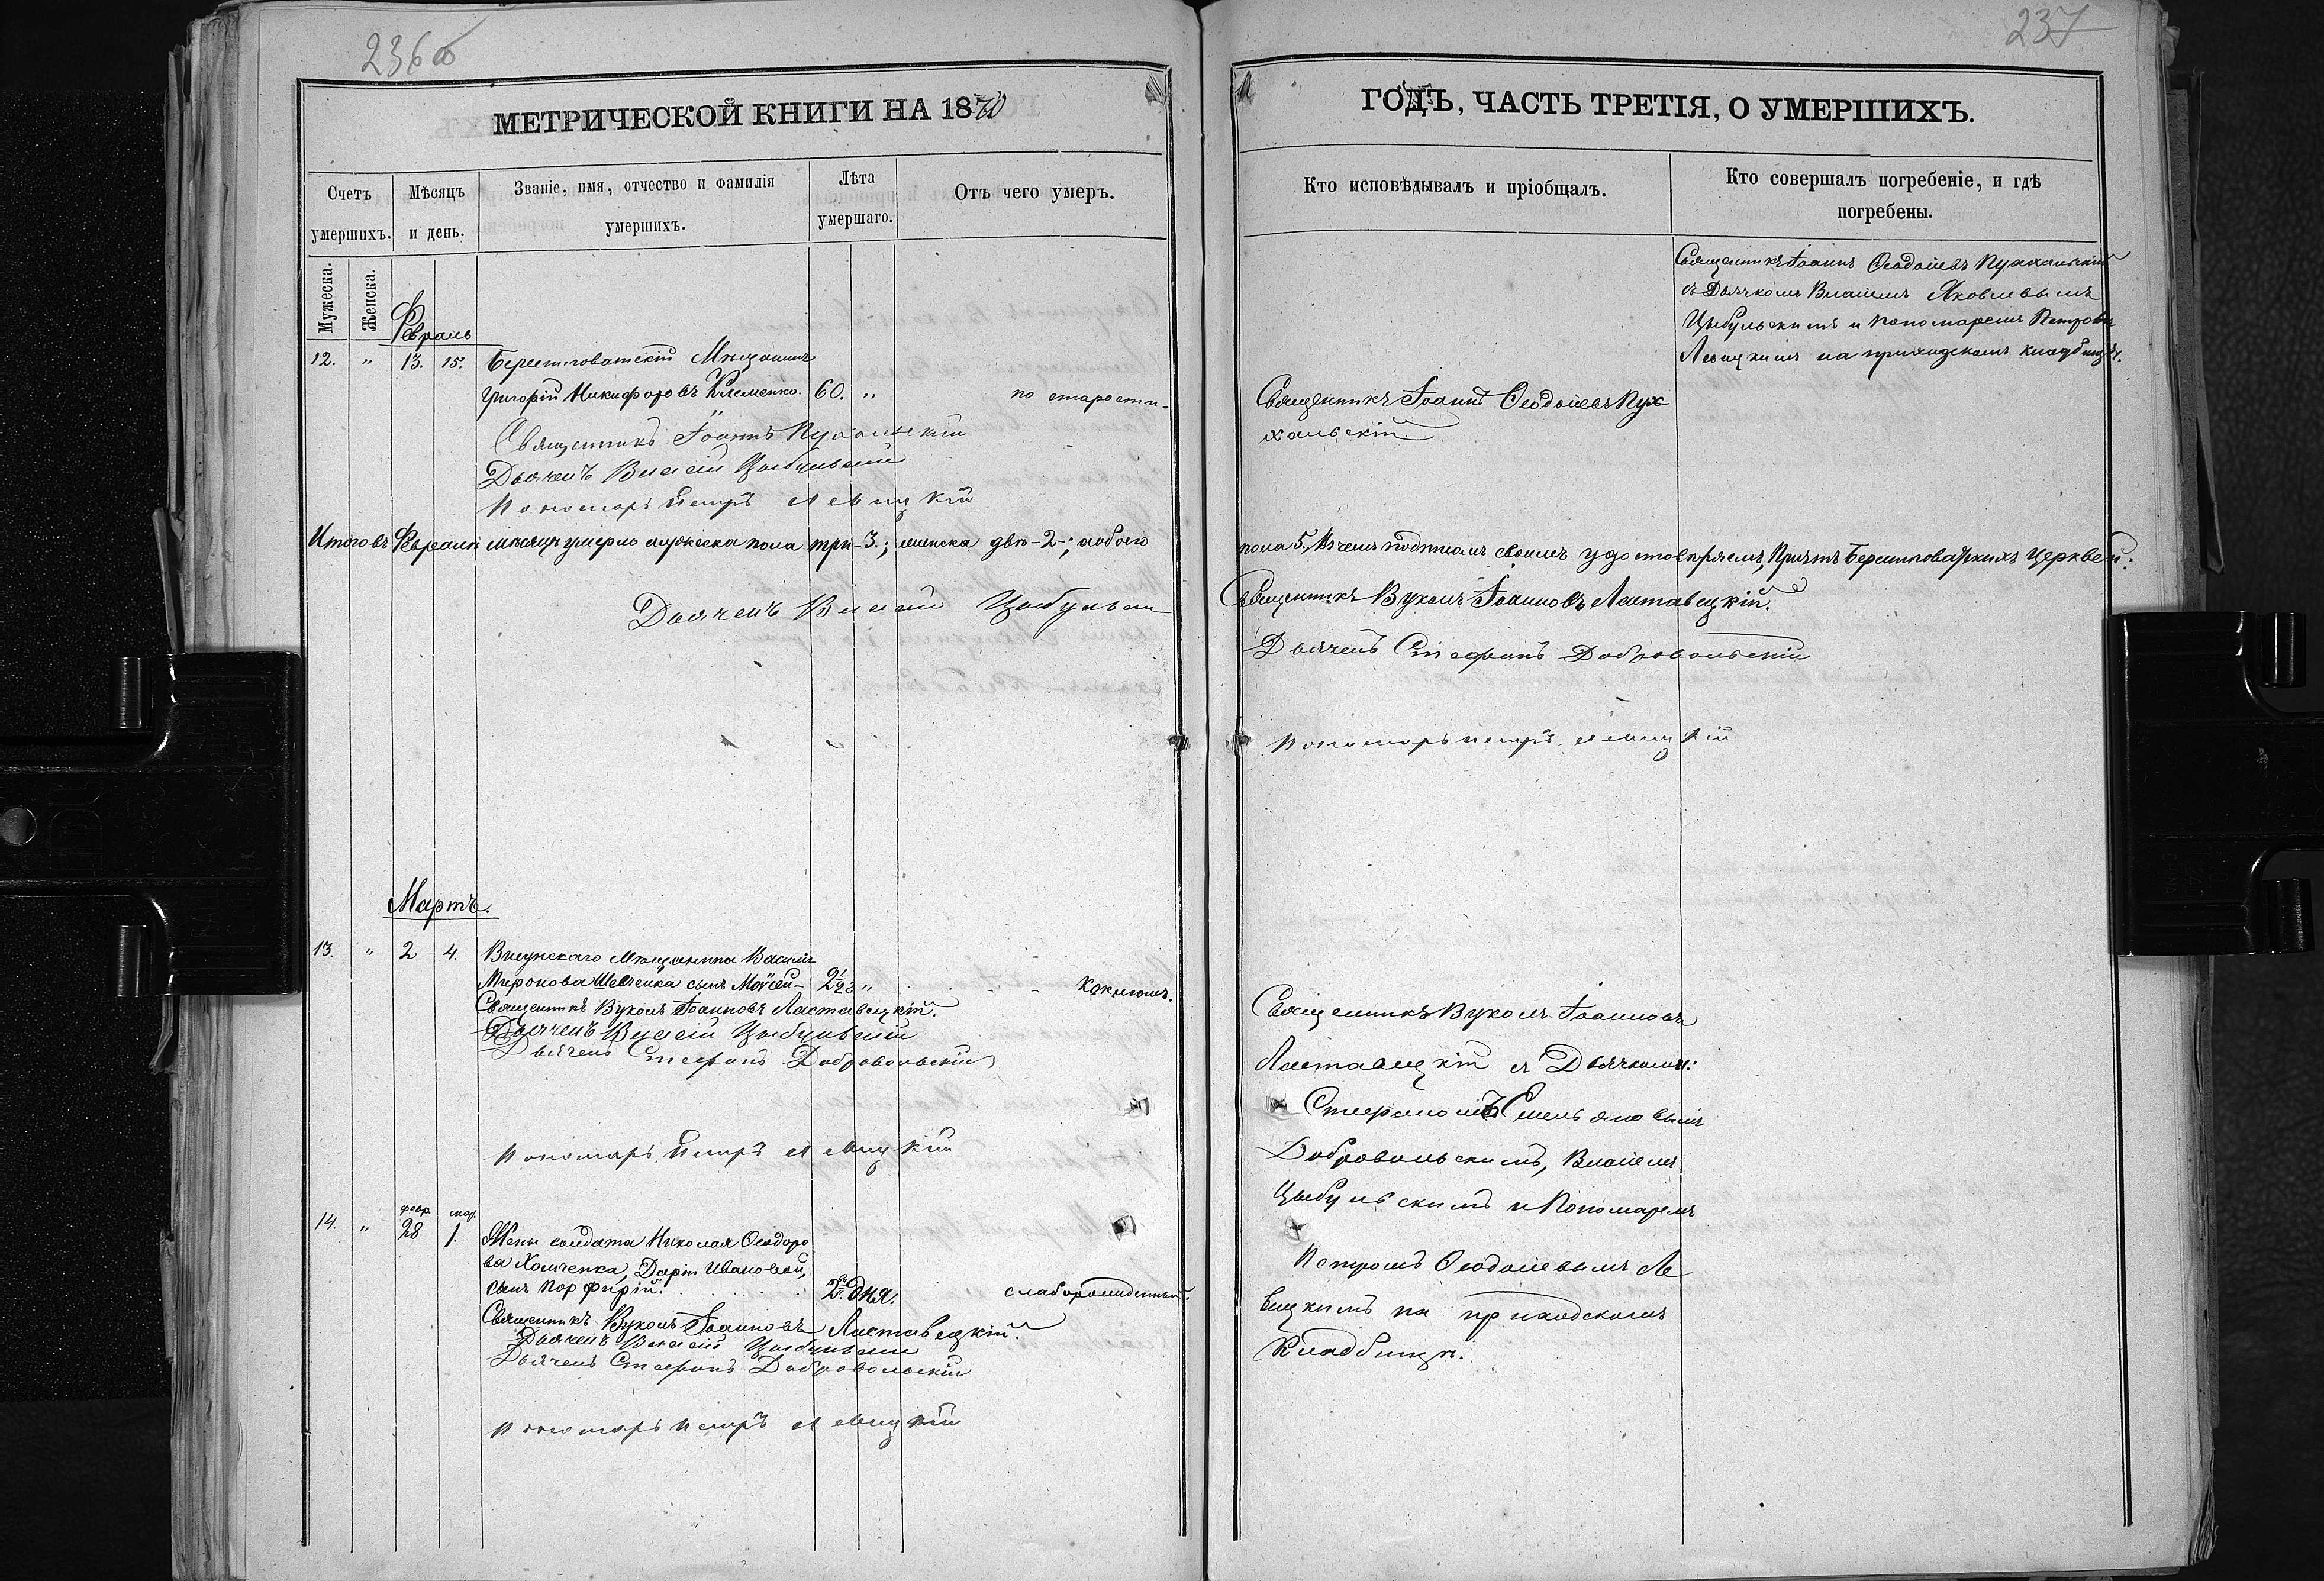 236об
МЕТРИЧЕСКОЙ КНИГИ НА 1870
Счетъ умершихъ.
Мѣсяцъ и день.
Званіе, имя, отчество и фамилія умершихъ.
Лѣта умершаго.
Отъ чего умеръ.
Мужеска.
Женска.
Февраль
12. " 13. 15. Берештоватскій Мѣщанинъ
Григорій Никифоровъ Клеменко. 60. " по старости.
Священникъ Іоаннъ Пухальскій
Дьячекъ Власій Цыбульскій
Пономарь Петръ Левицкій
Итого въ Февралѣ мѣсяцѣ умерло мужеска пола три -3.; женска двѣ -2-; а обоего
Дьячекъ Власій Цыбульскій
Мартъ.
13. " 2 4. Висунскаго Мѣщанина Василія
Миронова Шевченка сынъ Моѵсей - 2 1/2 " Коклюшъ.
Священникъ Вуколъ Іоанновъ Ластавецкій.
Дьячекъ Власій Цыбульскій
Дьячекъ Стефанъ Добровольскій
Пономарь Петръ Левицкій
14. " февр. 28 мар. 1. Жены солдата Николая Ѳеодоро
ва Хомченка, Даріи Ивановой,
сынъ Порфирій. 2. дня. слаборожденный.
Священникъ Вуколъ Іоанновъ Ластавецкій.
Дьячекъ Власій Цыбульскій
Дьячекъ Стефанъ Добровольскій
Пономарь Петръ Левицкій
237
ГОДЪ, ЧАСТЬ ТРЕТІЯ, О УМЕРШИХЪ.
Кто исповѣдывалъ и пріобщалъ.
Кто совершалъ погребеніе, и гдѣ
погребены.
Священникъ Іоаннъ Ѳеодосіевъ Пухальскій
съ Дьячкомъ Власіемъ Яковлевымъ
Цыбульскимъ и пономаремъ Петромъ
Левицкимъ на приходскомъ кладбищѣ.
Священникъ Іоаннъ Ѳеодосіевъ Пух
хальскій.
пола 5. Въ чемъ подписомъ своимъ удостовѣряемъ, Причтъ Берештоватскихъ Церквей:
Священникъ Вуколъ Іоанновъ Ластавецкій.
Дьячекъ Стефанъ Добровольскій
Пономарь Петръ Левицкій
Священникъ Вуколъ Іоанновъ
Ластавецкій съ Дьячками:
Стефаномъ Емельяновымъ
Добровольскимъ, Власіемъ
Цыбульскимъ и Пономаремъ
Петромъ Ѳеодосіевымъ Ле
вицкимъ на приходскомъ
Кладбищѣ.